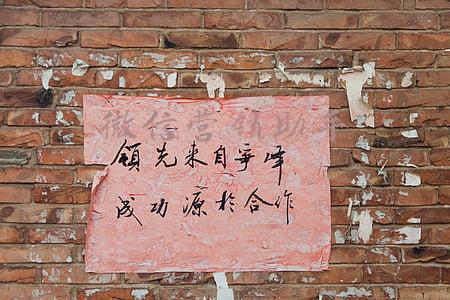 微信营销助手
领先来自争峰
成功源於合作